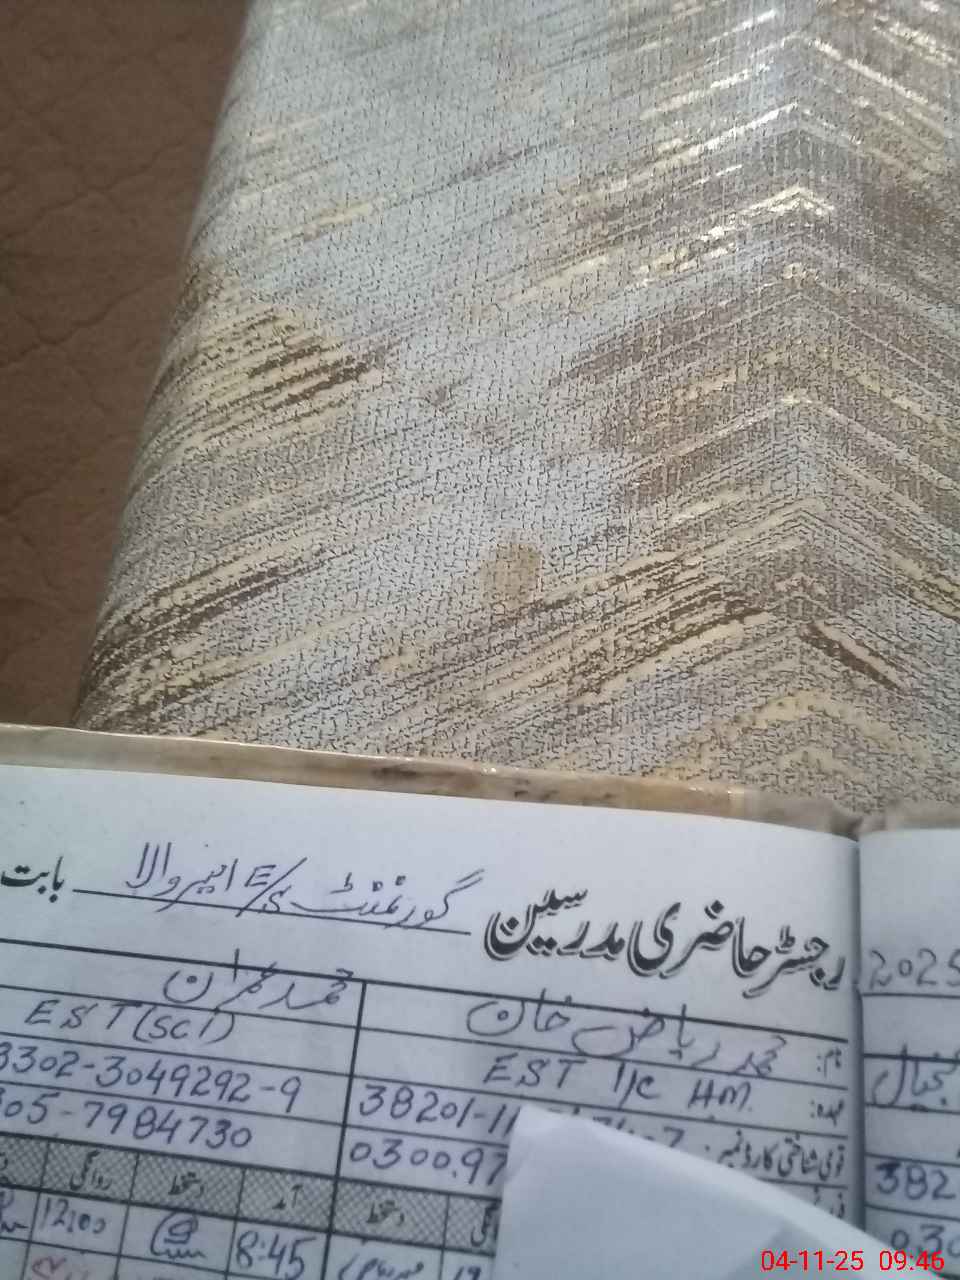 رجسٹر حاضری مدرسین گورنمنٹ E/S بابت
2025
نام: محمد ریاض خان محمد عمران
عہدہ: EST I/C HM EST (SCI)
قومی شناختی کارڈ نمبر: 38201-11 3302-3049292-9
0300.97 305-7984730
382
030
آمد دستخط روانگی
دستخط
8:45 12:00
04-11-25 09:46